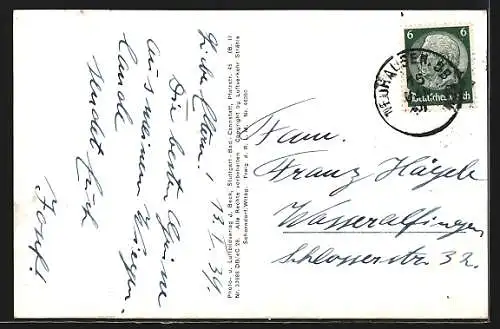 Liebe Eltern! 13. I. 39.
Die besten Grüße
aus meinem
Lande
sendet Euch
Josef!
Photo- u. Luftbildverlag A. Beck, Stuttgart-Bad-Cannstatt, Pfalzstr.
Alle Rechte vorbehalten Copyright by Luftverkehr Strähle
Schorndorf/Wttbg. Freig. d. R.L.M.
6 6
Deutsches Reich
NEUHAUSEN
Fam.
Franz Hägele
Wasseralfingen
Schlosserstr. 32.